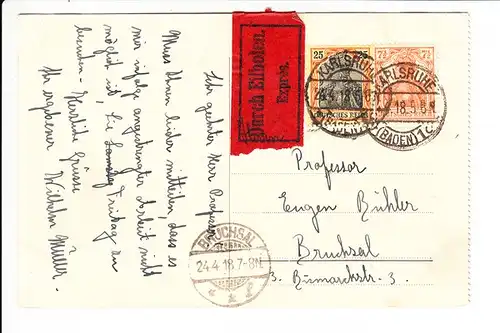 Sehr geehrter Herr Professor.
Muss Ihnen leider mitteilen, dass es
mir infolge angestrengter Arbeit nicht
möglich ist, Sie Samstag Freitag zu
besuchen. Herzliche Grüsse
Ihr ergebener Wilhelm Müller.
Durch Eilboten.
Exprès.
25 25
DEUTSCHES REICH
7½ 7½
KARLSRUHE
KARLSRUHE
18.5-6N
(BADEN) 1
Professor
Eugen Bühler
Bruchsal
3. Bismarckstr. 3.
BRUCHSAL
24.4.18.7-8N.